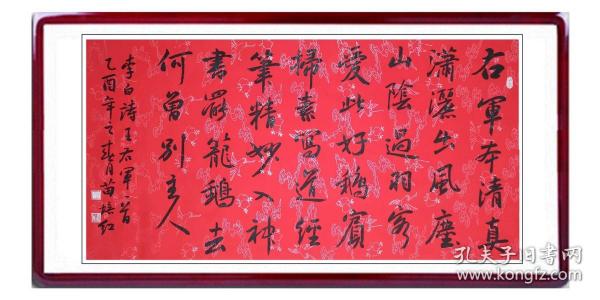 右軍本清真
瀟灑出風塵
山陰過羽客
愛此好鵝賓
掃素寫道經
筆精妙入神
書罷籠鵝去
何曾別主人
李白詩王右軍一首
乙酉年之春月苗培红
孔夫子旧书网
www.kongfz.com